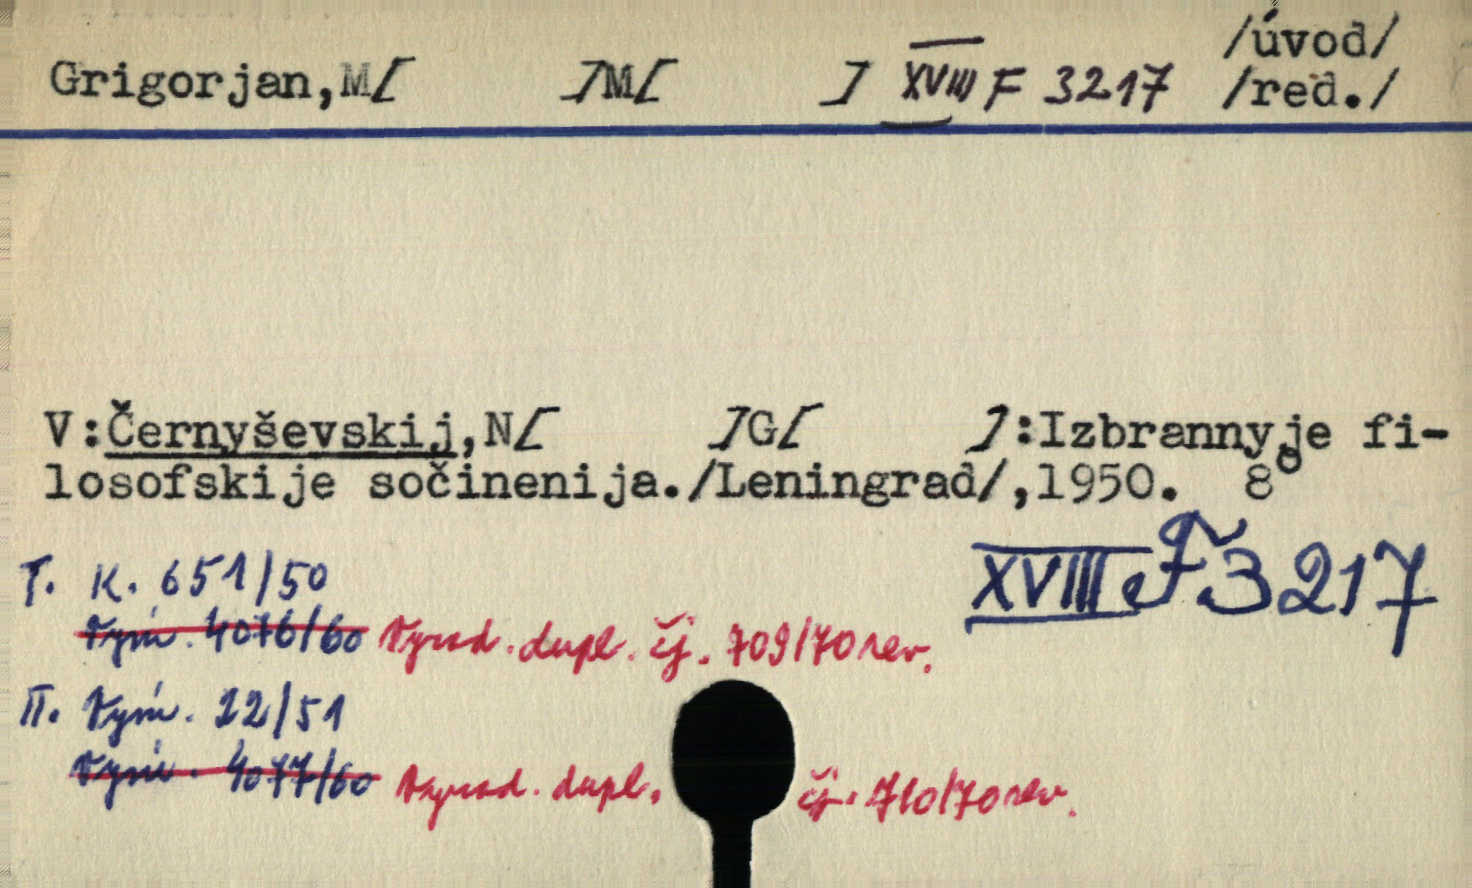 /úvod/
Grigorjan,M[ ]M[ ] XVIII F 3217 /red./
V:Černyševskij,N[ ]G[ ]:Izbrannyje fi-
losofskije sočinenija./Leningrad/,1950. 8°
XVIII F 3217
I. K. 651/50
Vým. 4076/60 Vyřad. dupl. čj. 709/70 rev.
II. Vým. 22/51
Vým. 4077/60 Vyřad. dupl. čj. 710/70 rev.